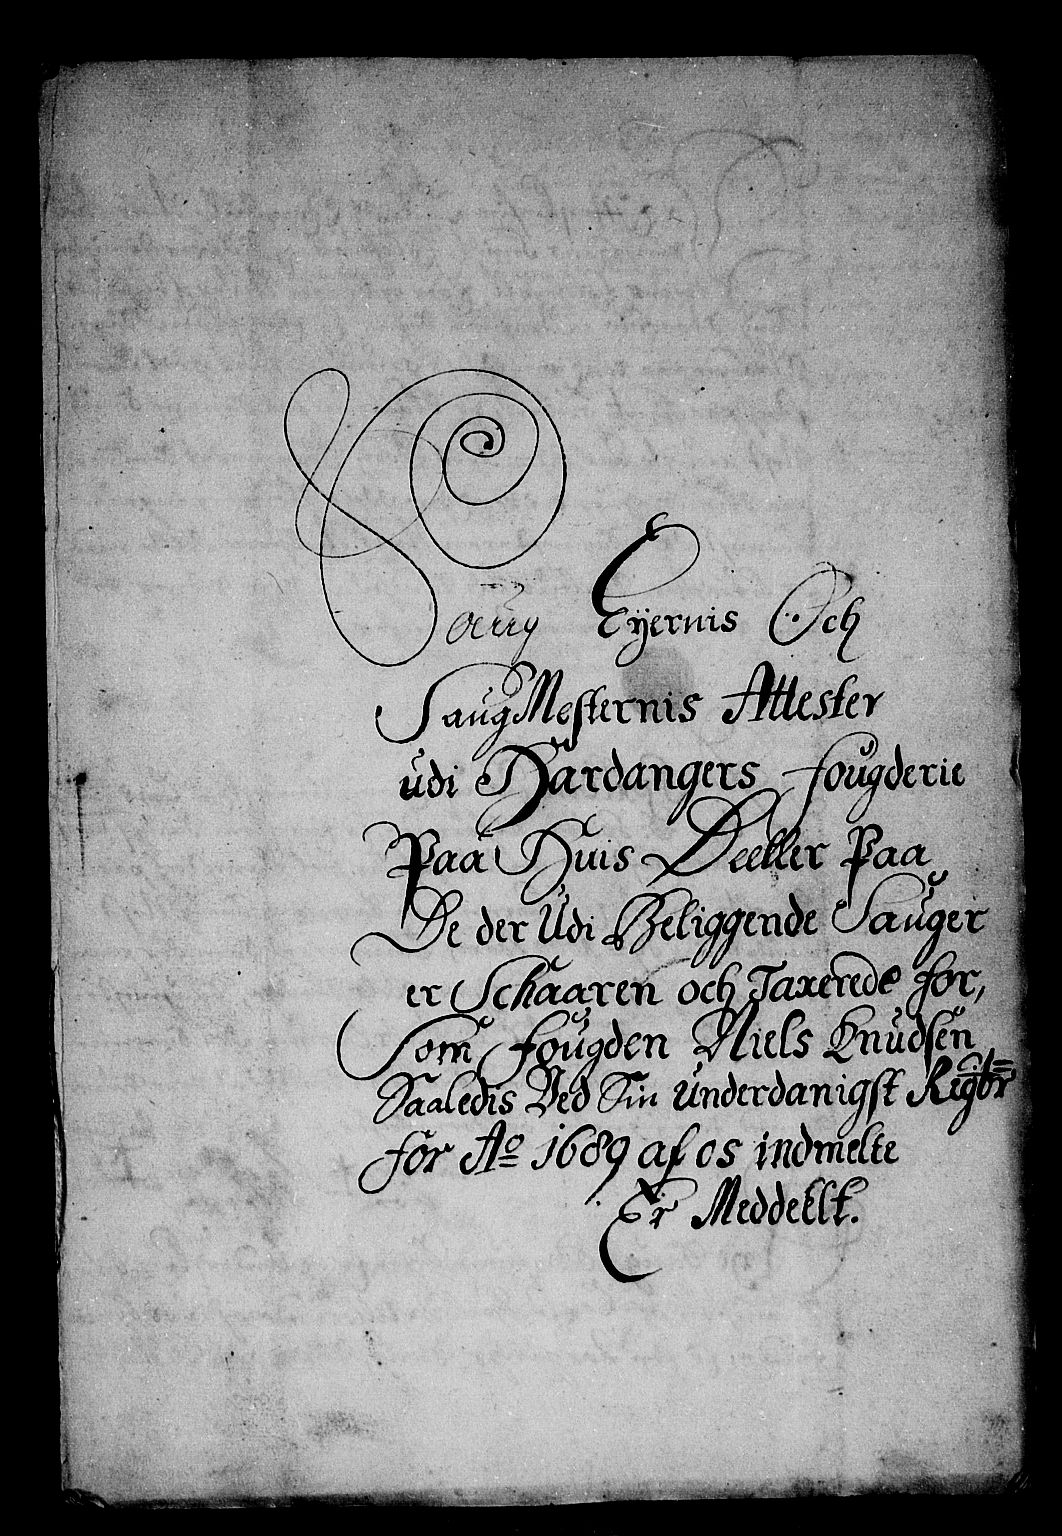 Saug Eyernis Och
Saug Mesternis Attester
udi Hardangers fougderie
Paa Huis Deeller Paa
De der Udi Beliggende Sauger
er Schaaren och Taxerede for,
Som fougden Niels Knudsen
Saaledis Ved Sin underdanigst
for Ao 1689 af os indmelte
Er Meddeelt.